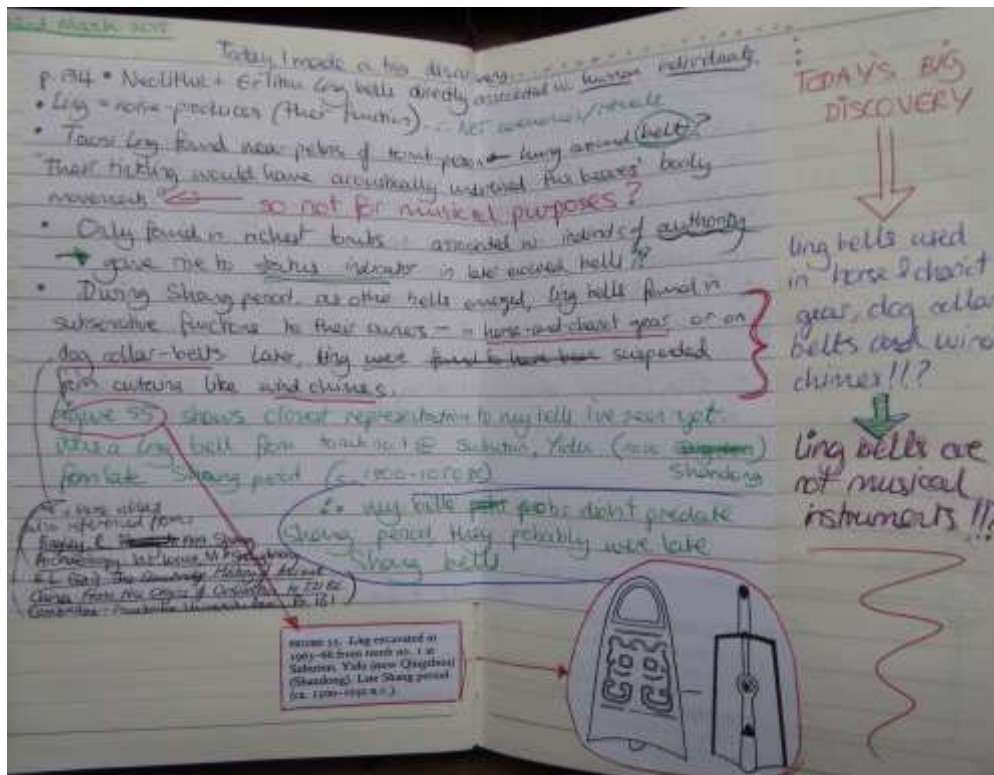 Today I made a big discovery...
p.134 • Neolithic + Erlitou ling bells directly associated w. human individuals.
• Ling = noise-producers (their function). ∴ Not
• Taosi ling found near pelvis of tomb person hung around belt?
"Their tinkling would have acoustically the bearers' bodily
movements" so not for musical purposes?
• Only found in richest tombs ∴ associated w. of authority
gave rise to status indicator in late bells??
• During Shang period, as other bells emerged, ling bells found in
subservient functions to their owners - in horse-and-chariot gear or on
dog collar-bells Later, ling were found to have been suspended
from like wind chimes.
Figure 55 shows closest representation to my bells I've seen yet.
It's a ling bell from tomb no. 1 @ Subutun, Yidu (now Shandong)
from late Shang period
∴ my bells probs didn't predate
Shang period they probably were late
Shang bells
also referenced from:
Bagley, R.
China from the Origins of Civilization to 221 BC
FIGURE 55. Ling excavated in
1965–66 from tomb no. 1 at
Subutun, Yidu (now Qingzhou)
(Shandong). Late Shang period
(ca. 1200–1050 B.C.).
TODAY'S BIG
DISCOVERY
ling bells used
in horse & chariot
gear, dog collar
belts and wind
chimes!!?
ling bells are
not musical
instruments!!?